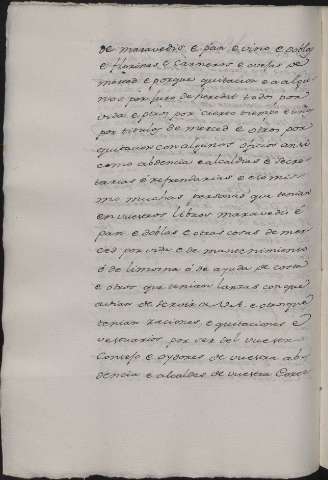 de maravedis e pan e vino e doblas
e florines e carneros e cosas de
merced e porque quitacion e a algu
nos por juro de heredat todos por
vida e otros por cierto tiempo e unos
por titulos de merced e otros por
quitacion con algunos oficios ansi
como abdencia e alcaldias e secre
tarias e refrendarias e eso mis
mo muchas personas que tenian
en vuestros libros maravedis e
pan e doblas e otras cosas de mer
ced por vida e de mantenimiento
o de limosna o de ayuda de costa
e otros que tenian lanzas con que
avian de servir a V.A. e otros que
tenian raciones e quitaciones e
vestuarios por ser del vuestro
Consejo e oydores de vuestra ab
dencia e alcaldes de vuestra Corte